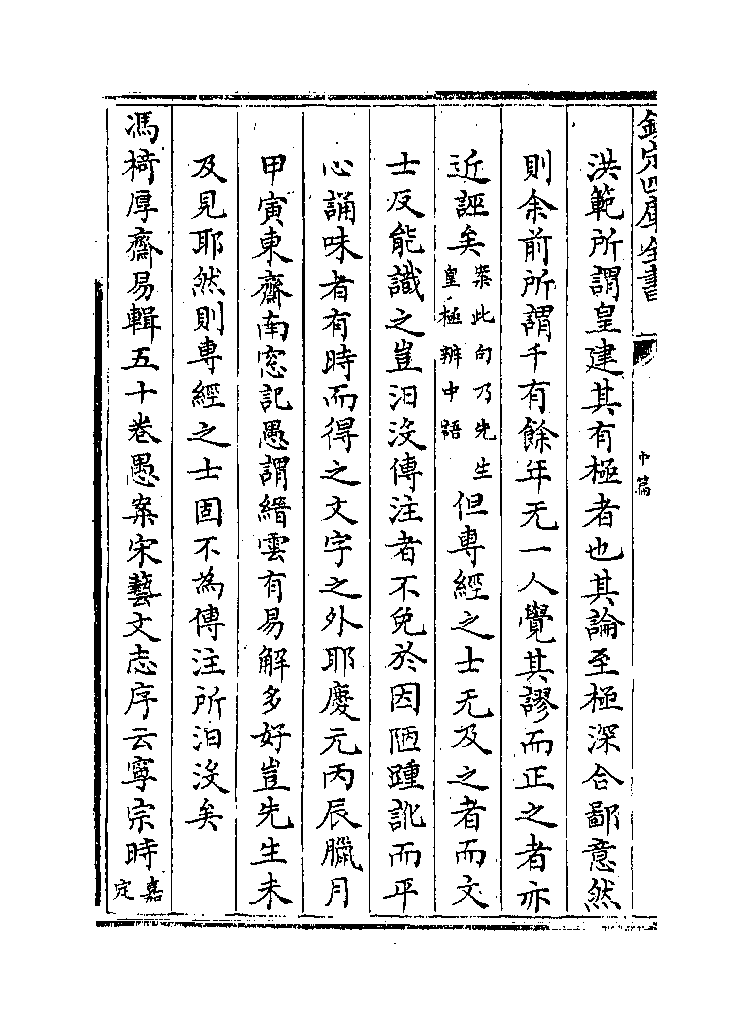 欽定四庫全書
中篇
洪範所謂皇建其有極者也其論至極深合鄙意然
則余前所謂千有餘年无一人覺其謬而正之者亦
近誣矣案此句乃先生皇極辨中語但專經之士无及之者而文
士反能識之豈汩沒傳注者不免於因陋踵訛而平
心誦味者有時而得之文字之外耶慶元丙辰臘月
甲寅東齋南窓記愚謂縉雲有易解多好豈先生未
及見耶然則専經之士固不為傳注所汩没矣
馮椅厚齋易輯五十卷愚案宋藝文志序云寧宗時嘉定